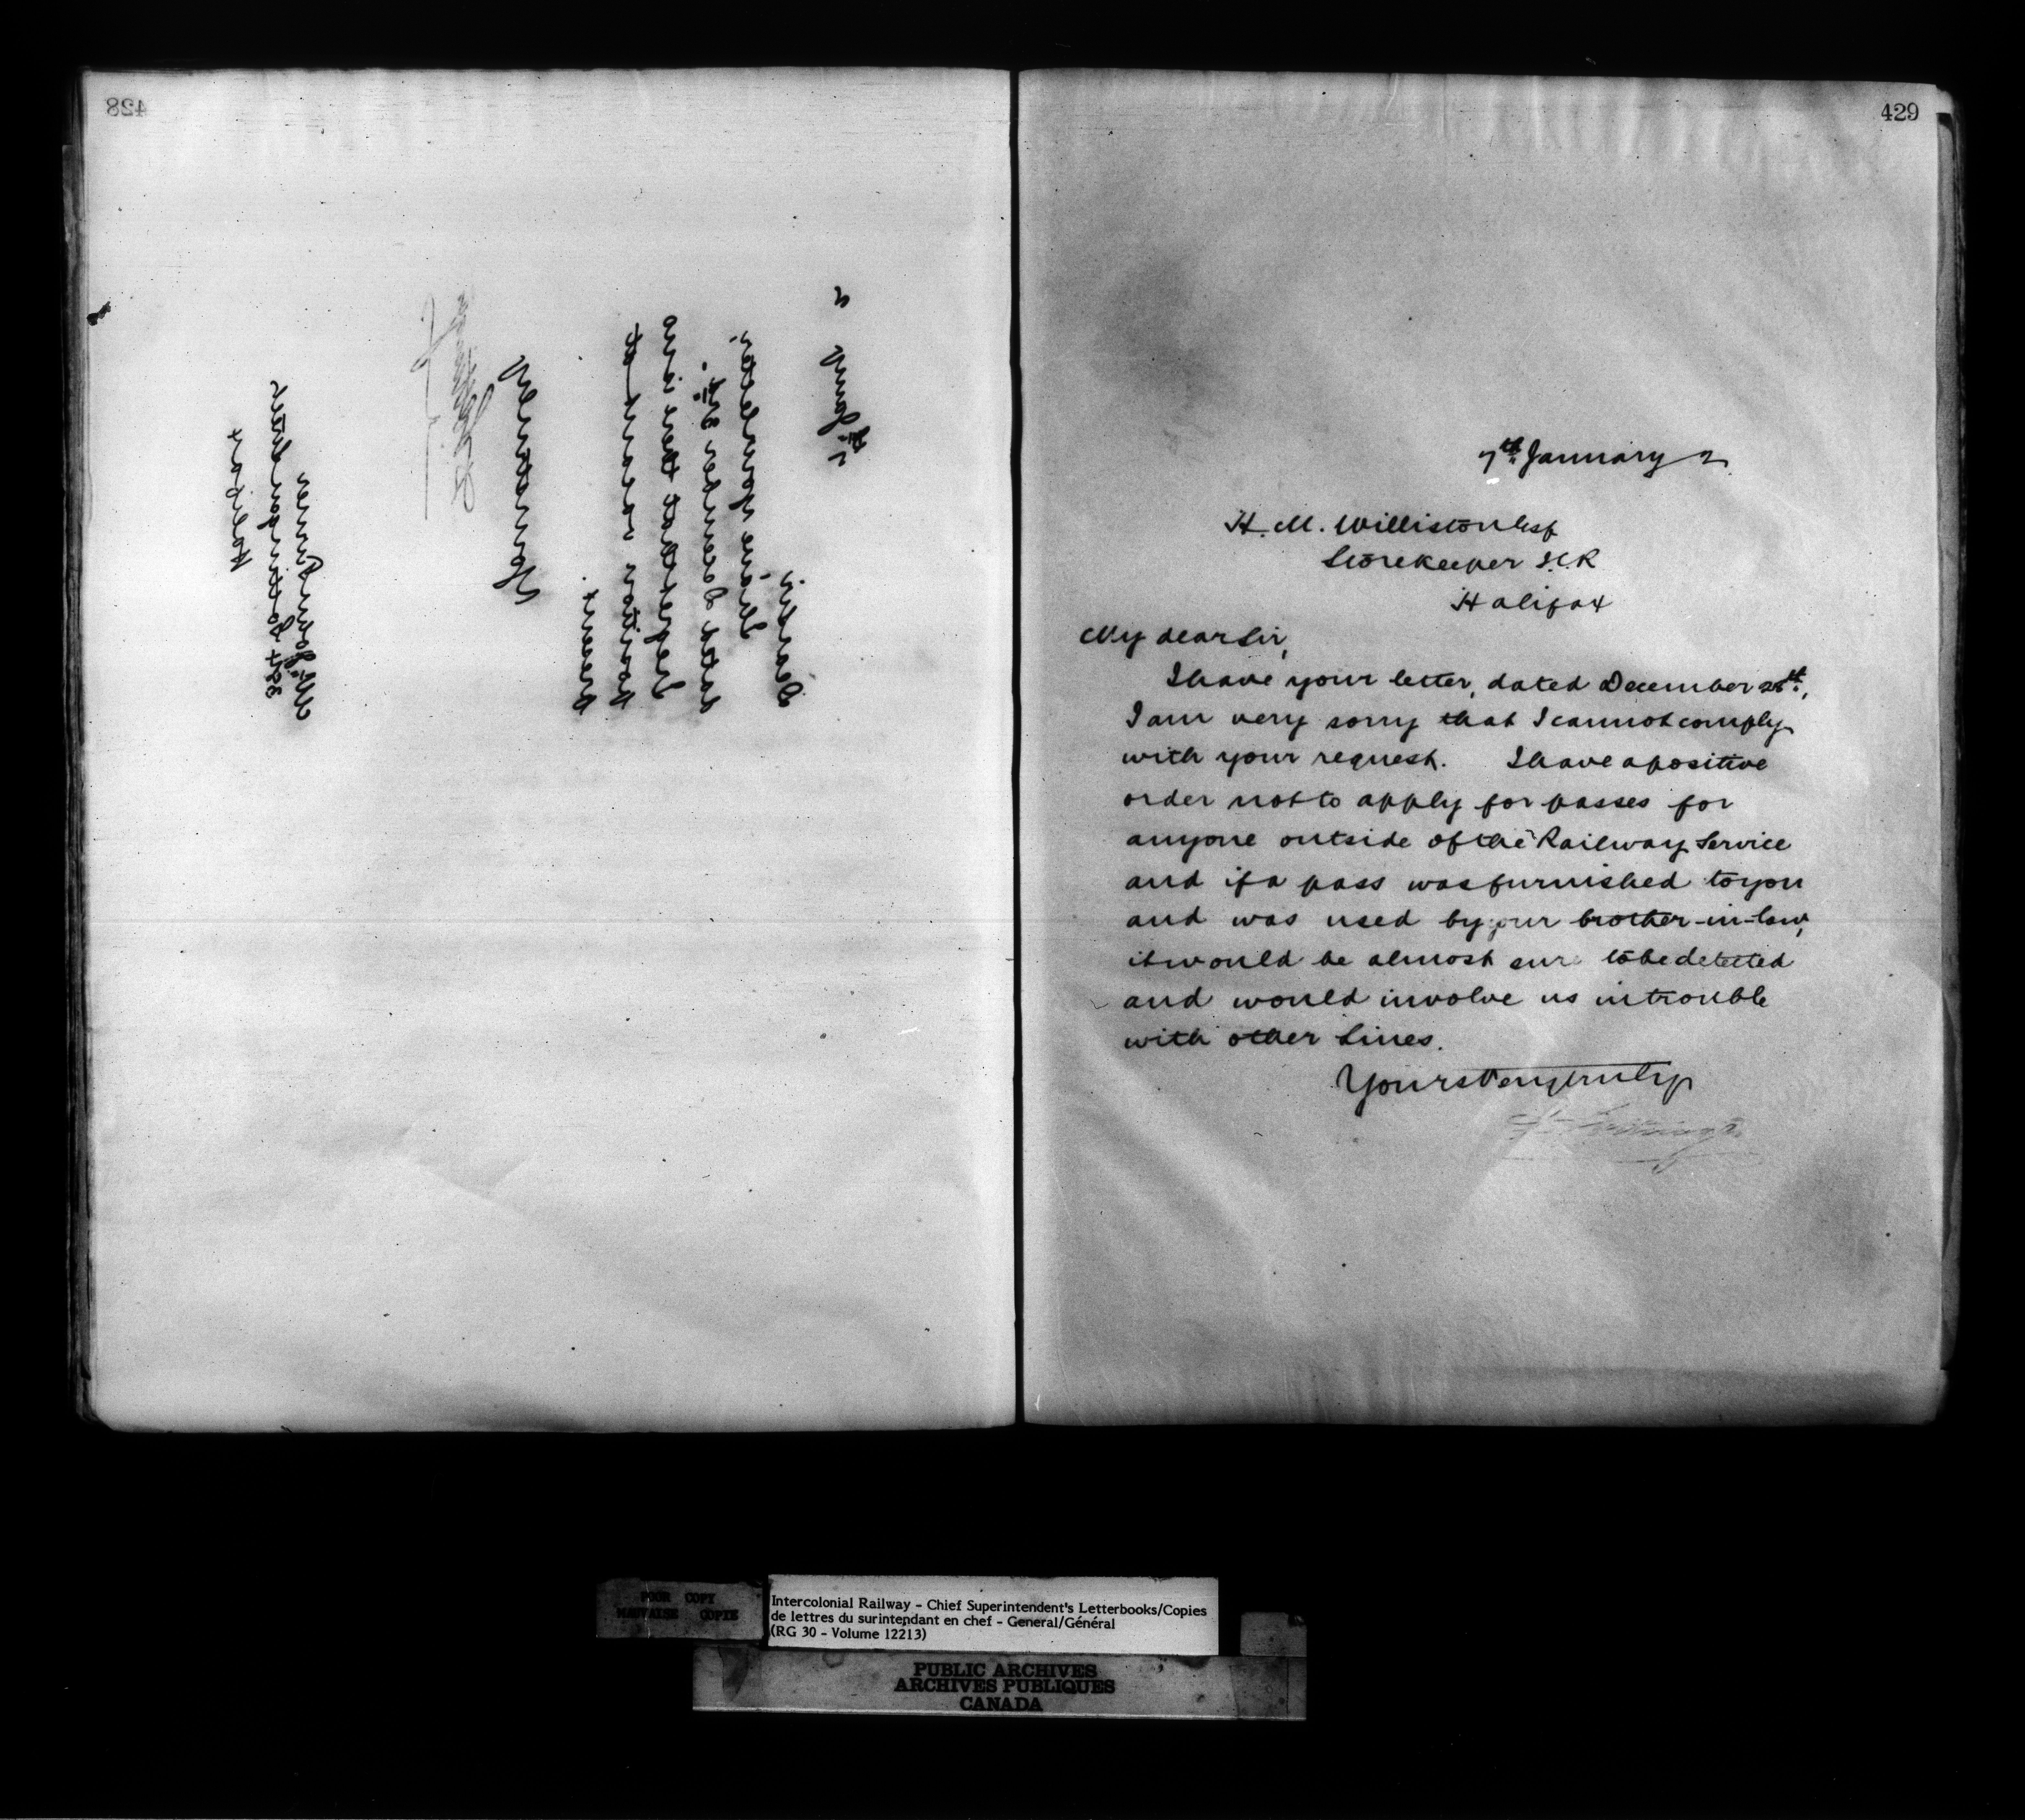 428
7th Jany 2
Dear Sir,
I have your letter,
dated December
I regret that there is no
position vacant at
present.
Yours truly
Mr John
Gottingen Street
Halifax
429
7th January 2
H. M. Williston Esq
Storekeeper I.C.R
Halifax
My dear Sir,
I have your letter, dated December
I am very sorry that I cannot comply
with your request. I have a positive
order not to apply for passes for
anyone outside of the Railway Service
and if a pass was furnished to you
and was used by your brother-in-law,
it would be almost sure to be detected
and would involve us in trouble
with other lines.
Yours very truly
POOR COPY
MAUVAISE COPIE
Intercolonial Railway - Chief Superintendent's Letterbooks/Copies
de lettres du surintendant en chef - General/Général
(RG 30 - Volume 12213)
PUBLIC ARCHIVES
ARCHIVES PUBLIQUES
CANADA